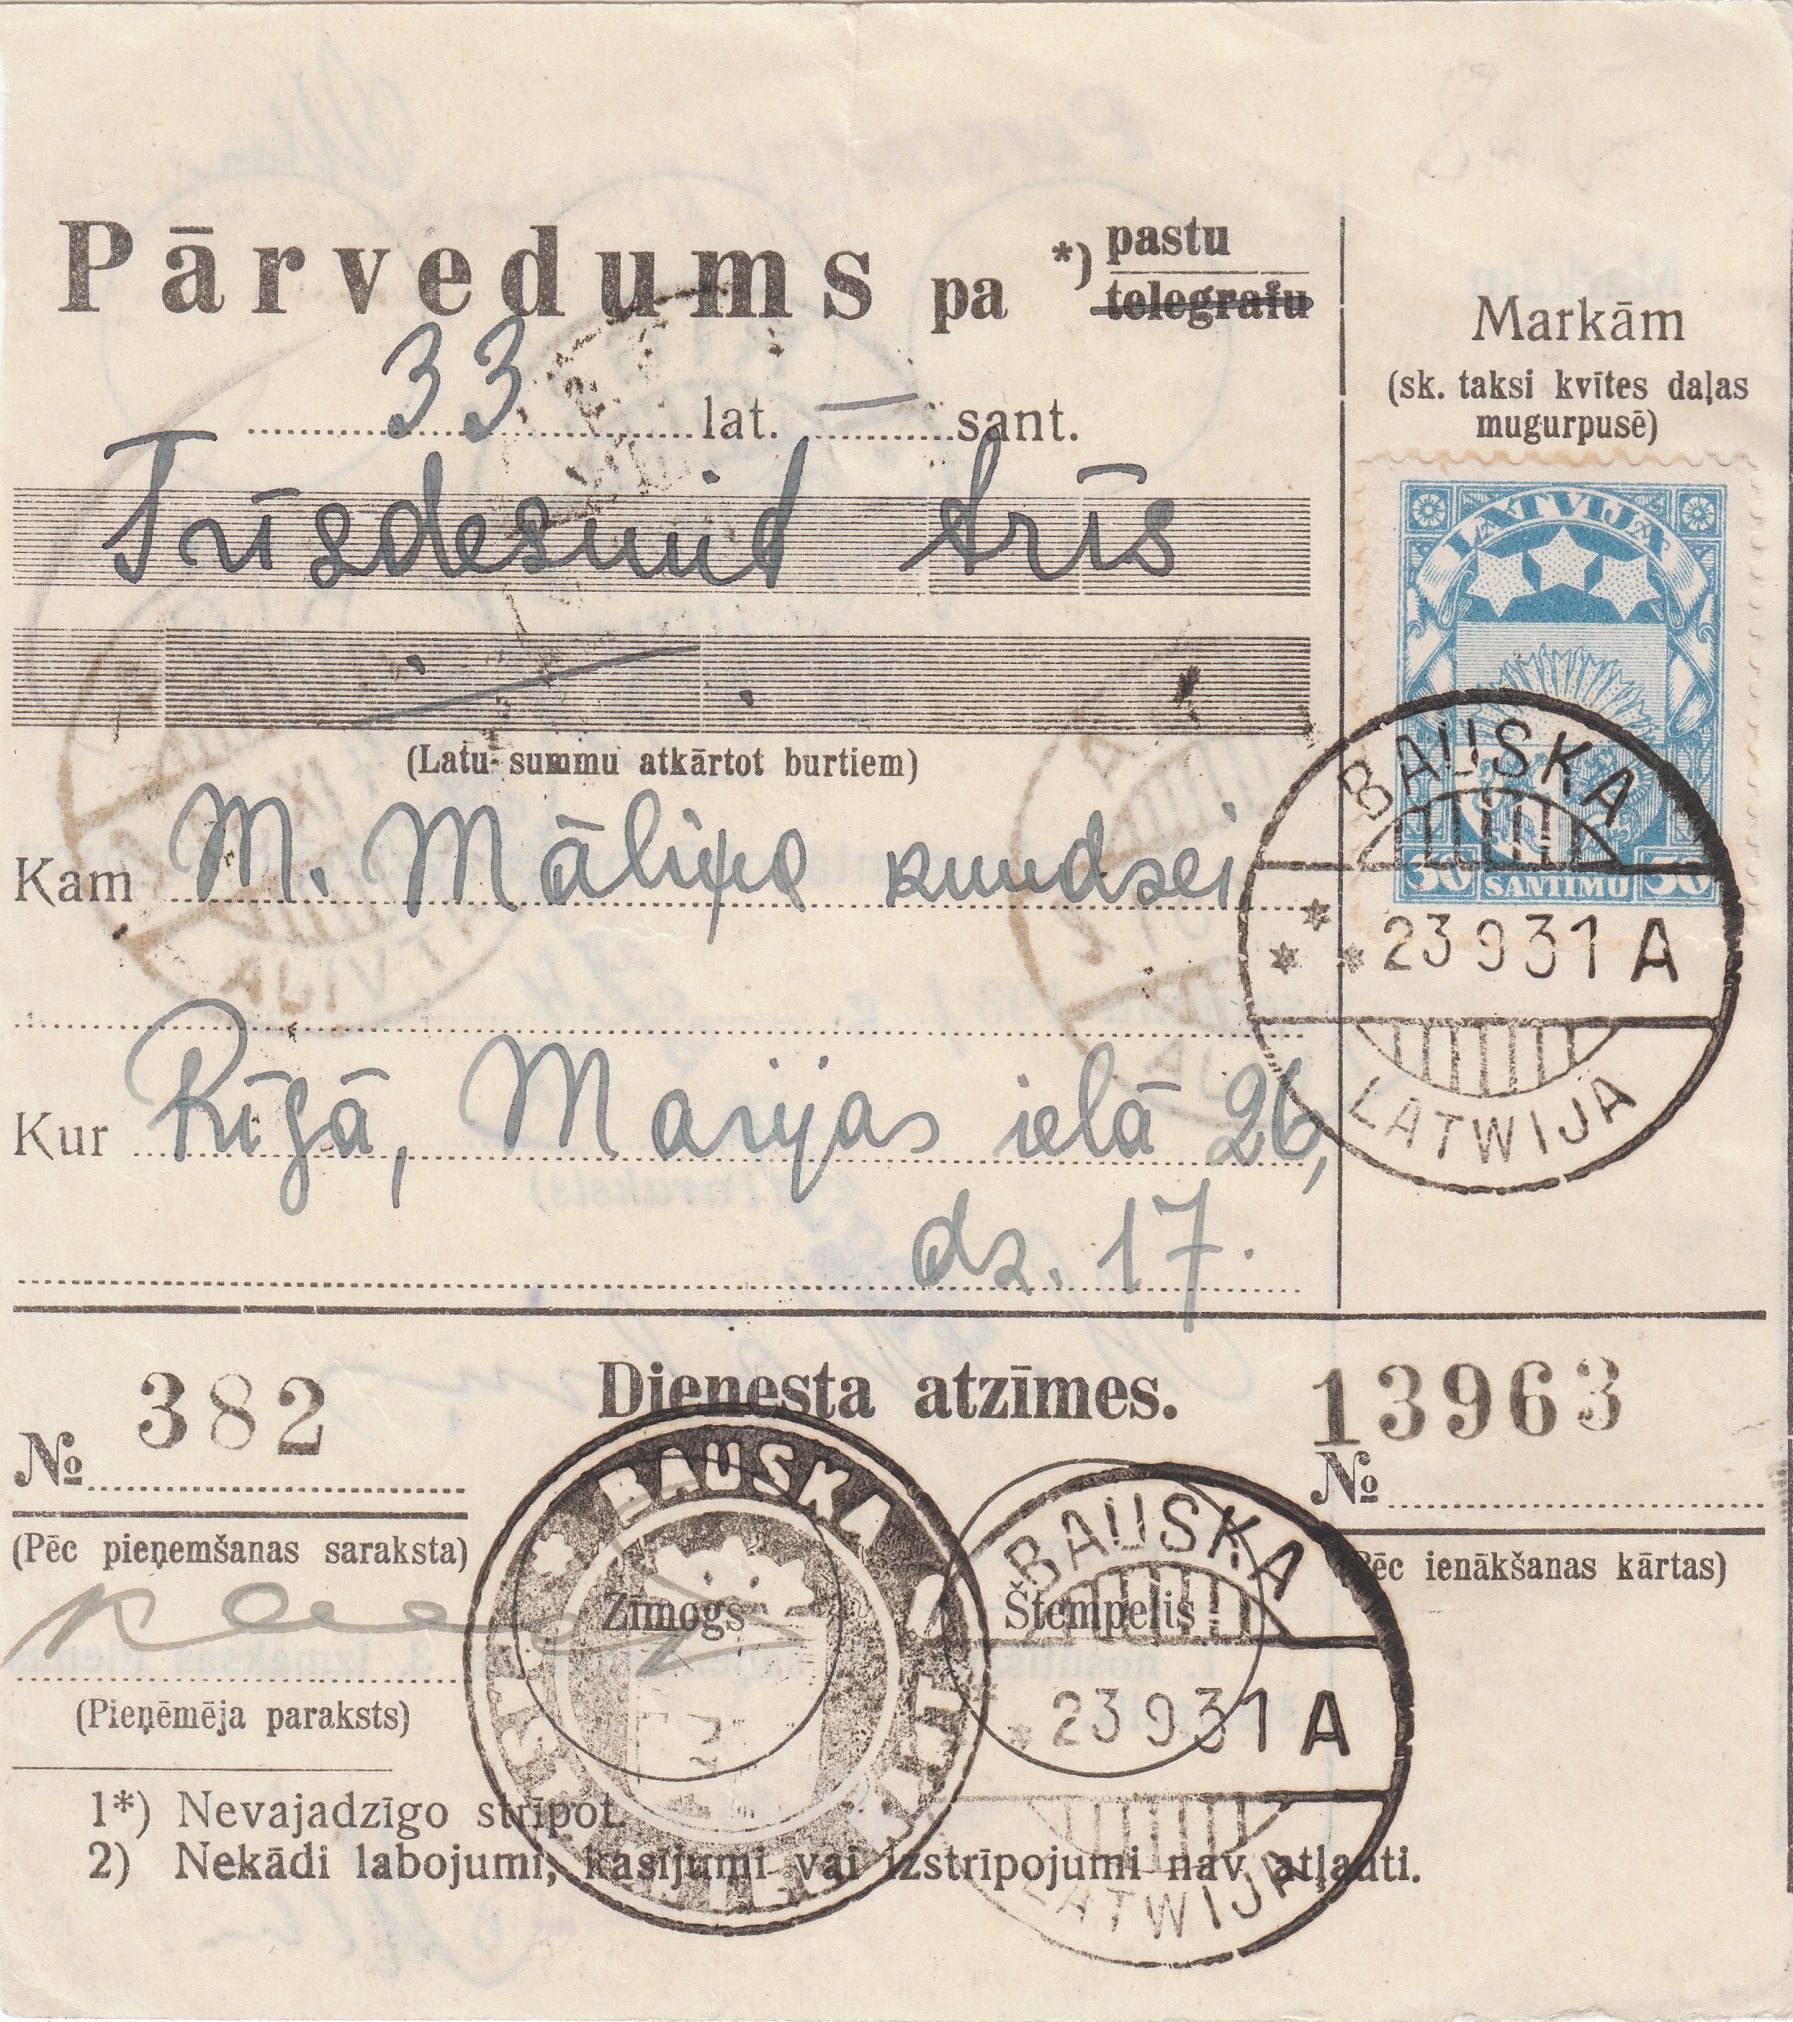 Pārvedums pa *) pastu
telegrafu
33 lat. — sant.
Trīsdesmit trīs
(Latu summu atkārtot burtiem)
Kam M. Māliņa kundzei
Kur Rīgā, Marijas ielā 26,
dz. 17.
Markām
(sk. taksi kvītes daļas
mugurpusē)
LATVIJA
30 SANTIMU 30
BAUSKA
23 9 31 A
LATWIJA
Dienesta atzīmes.
382
№
(Pēc pieņemšanas saraksta)
(Pieņēmēja paraksts)
13963
№
(Pēc ienākšanas kārtas)
BAUSKA
Zīmogs
Štempelis
BAUSKA
23 9 31 A
LATWIJA
1*) Nevajadzīgo strīpot.
2) Nekādi labojumi, kasījumi vai izstrīpojumi nav atļauti.